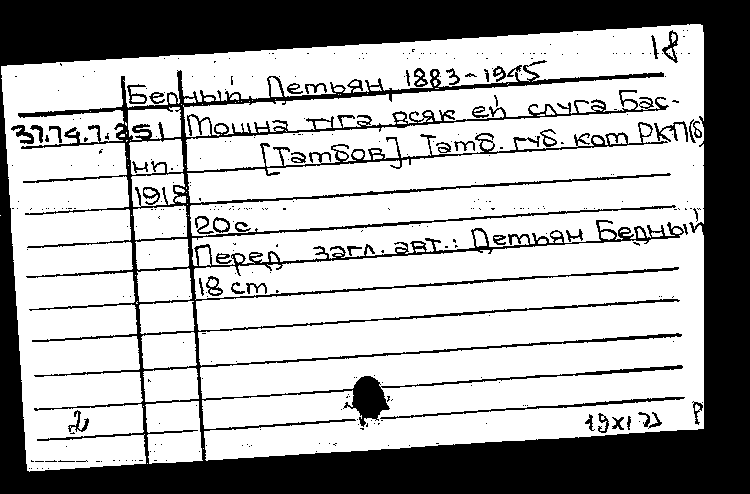 18
Бедный, Демьян, 1883-1945
37.74.7.251 Мошна туга, всяк ей слуга Бас-
ни. [Тамбов], Тамб. губ. ком РКП(б)
1918.
20с.
Перед загл. авт.: Демьян Бедный
18 cm.
2 19 XI 73 Р